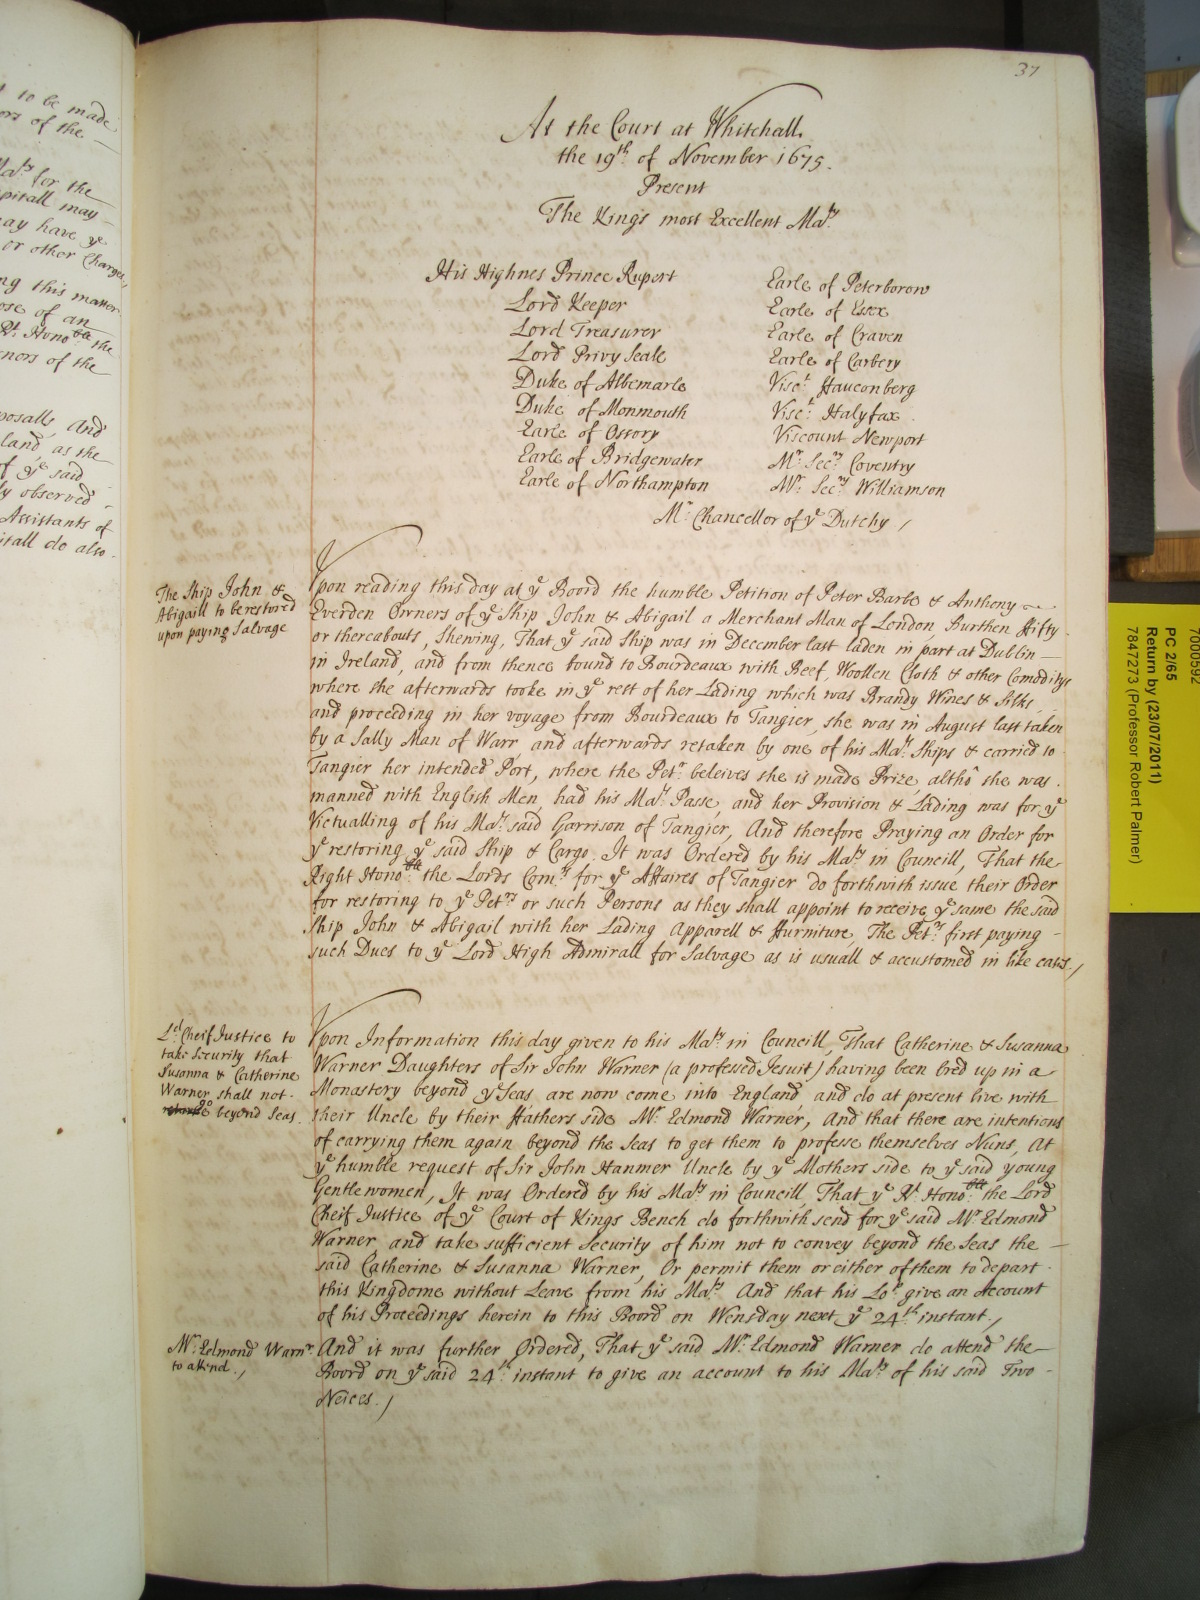 t to be made
ors of the
Ma.ts for the
spitall may
may have ye
or other Charges,
ng this matter
ose of an
Rt. Honoble. the
rnors of the
posalls, And
land, as she
f ye said
ly observed
Assistants of
itall do also
37
At the Court at Whitehall.
the 19th. of November 1675.
Present
The Kings most Excellent Ma.ty
His Highnes Prince Rupert
Lord Keeper
Lord Treasurer
Lord Privy Seale
Duke of Albemarle
Duke of Monmouth
Earle of Ossory
Earle of Bridgewater
Earle of Northampton
Earle of Peterborow
Earle of Essex
Earle of Craven
Earle of Carbery
Visct. Fauconberg
Visct. Halyfax.
Viscount Newport
Mr. Secry. Coventry
Mr. Secry. Williamson
Mr. Chancellor of ye Dutchy /
The Ship John &
Abigaill to be restored
upon paying Salvage
Upon reading this day at ye Board the humble Petition of Peter Barbe & Anthony
Everden Owners of ye Ship John & Abigail a Merchant Man of London, Burthen fifty
or thereabouts, Shewing, That ye said Ship was in December last laden in part at Dublin
in Ireland, and from thence bound to Bourdeaux with Beef, Woollen Cloth & other Comoditys
where she afterwards tooke in ye rest of her Lading which was Brandy Wines & Silks,
and proceeding in her voyage from Bourdeaux to Tangier, she was in August last taken
by a Sally Man of Warr, and afterwards retaken by one of his Ma.ts Ships & carried to
Tangier her intended Port, where the Petrs. beleives she is made Prize, altho' she was
manned with English Men, had his Ma.ts Passe, and her Provision & Lading was for ye
Victualling of his Ma.ts said Garrison of Tangier, And therefore Praying an Order for
ye restoring ye said Ship & Cargo. It was Ordered by his Ma.ty in Councill, That the
Right Honoble. the Lords Comrs. for ye Affaires of Tangier do forthwith issue their Order
for restoring to ye Petrs. or such Persons as they shall appoint to receive ye same the said
Ship John & Abigail with her Lading Apparell & Furniture, The Petrs. first paying
such Dues to ye Lord High Admirall for Salvage as is usuall & accustomed in like cases. /
Ld. Cheif Justice to
take Security that
Susanna & Catherine
Warner shall not
go beyond Seas.
Upon Information this day given to his Ma.ty in Councill, That Catherine & Susanna
Warner Daughters of Sir John Warner (a professed Jesuit) having been bred up in a
Monastery beyond ye Seas are now come into England, and do at present live with
their Uncle by their Fathers side Mr. Edmond Warner, And that there are intentions
of carrying them again beyond the Seas to get them to professe themselves Nuns, At
ye humble request of Sir John Hanmer Uncle by ye Mothers side to ye said young
Gentlewomen, It was Ordered by his Ma.ty in Councill, That ye Rt. Honoble. the Lord
Cheif Justice of ye Court of Kings Bench do forthwith send for ye said Mr. Edmond
Warner, and take sufficient Security of him not to convey beyond the Seas the
said Catherine & Susanna Warner, Or permit them or either of them to depart
this Kingdome without Leave from his Ma.ty And that his Lop. give an Account
of his Proceedings herein to this Board on Wensday next ye 24th. instant. /
Mr. Edmond Warnr.
to attend. /
And it was further Ordered, That ye said Mr. Edmond Warner do attend the
Board on ye said 24th. instant to give an account to his Ma.ty of his said Two
Neices. /
7000592
PC 2/65
Return by (23/07/2011)
7847273 (Professor Robert Palmer)